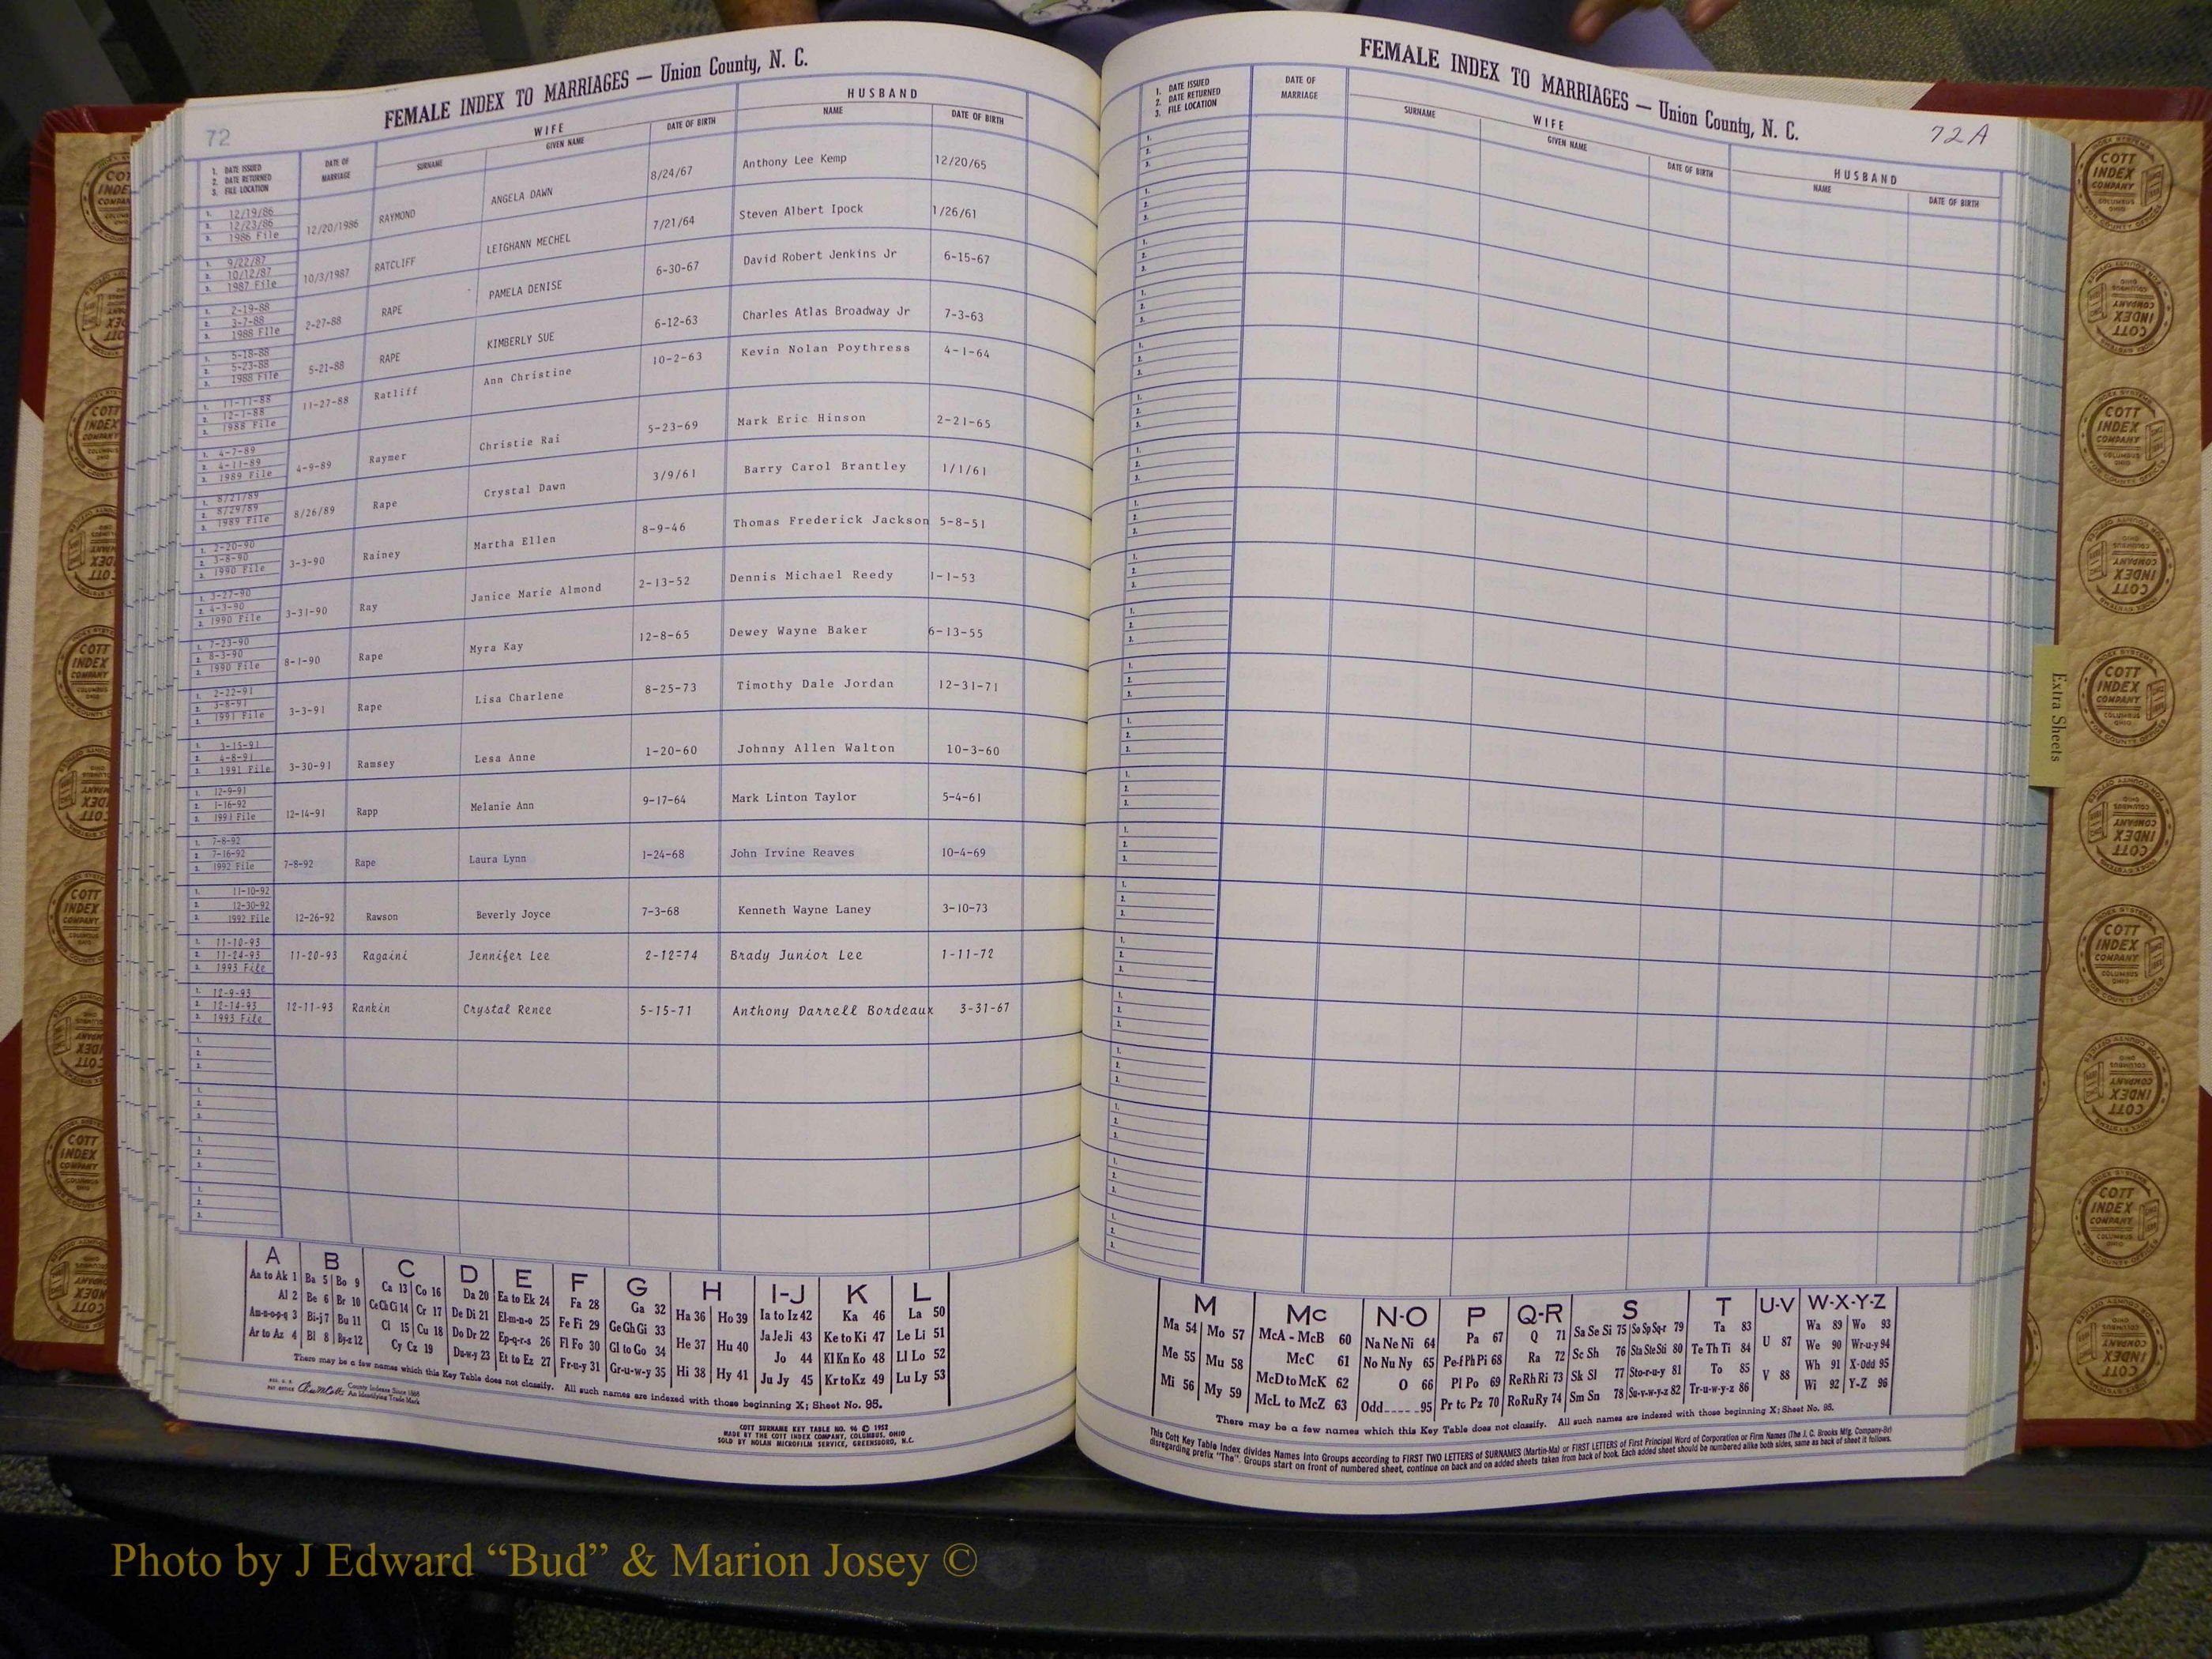 72
FEMALE INDEX TO MARRIAGES — Union County, N. C.
1. DATE ISSUED
2. DATE RETURNED
3. FILE LOCATION
DATE OF MARRIAGE
WIFE
SURNAME GIVEN NAME DATE OF BIRTH
HUSBAND
NAME DATE OF BIRTH
1. 12/19/86
2. 12/23/86
3. 1986 File
12/20/1986 RAYMOND ANGELA DAWN 8/24/67 Anthony Lee Kemp 12/20/65
1. 9/22/87
2. 10/12/87
3. 1987 File
10/3/1987 RATCLIFF LEIGHANN MECHEL 7/21/64 Steven Albert Ipock 1/26/61
1. 2-19-88
2. 3-7-88
3. 1988 File
2-27-88 RAPE PAMELA DENISE 6-30-67 David Robert Jenkins Jr 6-15-67
1. 5-18-88
2. 5-23-88
3. 1988 File
5-21-88 RAPE KIMBERLY SUE 6-12-63 Charles Atlas Broadway Jr 7-3-63
1. 11-11-88
2. 12-1-88
3. 1988 File
11-27-88 Ratliff Ann Christine 10-2-63 Kevin Nolan Poythress 4-1-64
1. 4-7-89
2. 4-11-89
3. 1989 File
4-9-89 Raymer Christie Rai 5-23-69 Mark Eric Hinson 2-21-65
1. 8/21/89
2. 8/29/89
3. 1989 File
8/26/89 Rape Crystal Dawn 3/9/61 Barry Carol Brantley 1/1/61
1. 2-20-90
2. 3-8-90
3. 1990 File
3-3-90 Rainey Martha Ellen 8-9-46 Thomas Frederick Jackson 5-8-51
1. 3-27-90
2. 4-3-90
3. 1990 File
3-31-90 Ray Janice Marie Almond 2-13-52 Dennis Michael Reedy 1-1-53
1. 7-23-90
2. 8-3-90
3. 1990 File
8-1-90 Rape Myra Kay 12-8-65 Dewey Wayne Baker 6-13-55
1. 2-22-91
2. 3-8-91
3. 1991 File
3-3-91 Rape Lisa Charlene 8-25-73 Timothy Dale Jordan 12-31-71
1. 3-15-91
2. 4-8-91
3. 1991 File
3-30-91 Ramsey Lesa Anne 1-20-60 Johnny Allen Walton 10-3-60
1. 12-9-91
2. 1-16-92
3. 1991 File
12-14-91 Rapp Melanie Ann 9-17-64 Mark Linton Taylor 5-4-61
1. 7-8-92
2. 7-16-92
3. 1992 File
7-8-92 Rape Laura Lynn 1-24-68 John Irvine Reaves 10-4-69
1. 11-10-92
2. 12-30-92
3. 1992 File
12-26-92 Rawson Beverly Joyce 7-3-68 Kenneth Wayne Laney 3-10-73
1. 11-10-93
2. 11-24-93
3. 1993 File
11-20-93 Ragaini Jennifer Lee 2-12=74 Brady Junior Lee 1-11-72
1. 12-9-93
2. 12-14-93
3. 1993 File
12-11-93 Rankin Crystal Renee 5-15-71 Anthony Darrell Bordeaux 3-31-67
A B C D E F G H I-J K L
Aa to Ak 1 Ba 5 Bo 9 Ca 13 Co 16 Da 20 Ea to Ek 24 Fa 28 Ga 32 Ha 36 Ho 39 Ia to Iz 42 Ka 46 La 50
Al 2 Be 6 Br 10 Ce Ch Ci 14 Cr 17 De Di 21 El-m-n-o 25 Fe Fi 29 Ge Gh Gi 33 He 37 Hu 40 Ja Je Ji 43 Ke to Ki 47 Le Li 51
Am-n-o-p-q 3 Bi-j 7 Bu 11 Cl 15 Cu 18 Do Dr 22 Ep-q-r-s 26 Fl Fo 30 Gl to Go 34 Hi 38 Hy 41 Jo 44 Kl Kn Ko 48 Ll Lo 52
Ar to Az 4 Bl 8 By-z 12 Cy Cz 19 Du-w-y 23 Et to Ez 27 Fr-u-y 31 Gr-u-w-y 35 Ju Jy 45 Kr to Kz 49 Lu Ly 53
There may be a few names which this Key Table does not classify. All such names are indexed with those beginning X; Sheet No. 95.
County Indexes Since 1888
An Identifying Trade Mark
COTT SURNAME KEY TABLE NO. 96 © 1952
MADE BY THE COTT INDEX COMPANY, COLUMBUS, OHIO
SOLD BY NOLAN MICROFILM SERVICE, GREENSBORO, N.C.
FEMALE INDEX TO MARRIAGES — Union County, N. C.
72A
1. DATE ISSUED
2. DATE RETURNED
3. FILE LOCATION
DATE OF MARRIAGE
WIFE
SURNAME GIVEN NAME DATE OF BIRTH
HUSBAND
NAME DATE OF BIRTH
Extra Sheets
M Mc N-O P Q-R S T U-V W-X-Y-Z
Ma 54 Mo 57 McA - McB 60 Na Ne Ni 64 Pa 67 Q 71 Sa Se Si 75 So Sp Sq-r 79 Ta 83 U 87 Wa 89 Wo 93
Me 55 Mu 58 McC 61 No Nu Ny 65 Pe-f Ph Pi 68 Ra 72 Sc Sh 76 Sta Ste Sti 80 Te Th Ti 84 V 88 We 90 Wr-u-y 94
Mi 56 My 59 McD to McK 62 O 66 Pl Po 69 Re Rh Ri 73 Sk Sl 77 Sto-r-u-y 81 To 85 Wh 91 X-Odd 95
McL to McZ 63 Odd 95 Pr to Pz 70 Ro Ru Ry 74 Sm Sn 78 Su-v-w-y-z 82 Tr-u-w-y-z 86 Wi 92 Y-Z 96
There may be a few names which this Key Table does not classify. All such names are indexed with those beginning X; Sheet No. 95.
This Cott Key Table Index divides Names into Groups according to FIRST TWO LETTERS of SURNAMES (Martin-Ma) or FIRST LETTERS of First Principal Word of Corporation or Firm Names (The J. C. Brooks Mfg. Company-Br)
disregarding prefix "The". Groups start on front of numbered sheet, continue on back and on added sheets taken from back of book. Each added sheet should be numbered alike both sides, same as back of sheet it follows.
COTT INDEX COMPANY COLUMBUS OHIO
Photo by J Edward “Bud” & Marion Josey ©